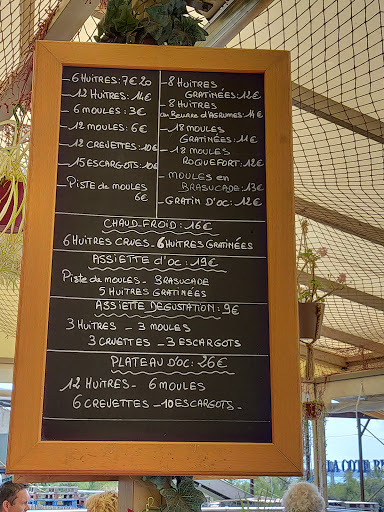 - 6 HUÎTRES: 7€20
- 12 HUÎTRES: 14€
- 6 MOULES: 3€
- 12 MOULES: 6€
- 12 CREVETTES: 10€
- 15 ESCARGOTS: 10€
- PISTE DE MOULES
6€
- 8 HUÎTRES
GRATINÉES: 12€
- 8 HUÎTRES
au BEURRE D'AGRUMES: 14€
- 18 MOULES
GRATINÉES: 11€
- 18 MOULES
ROQUEFORT: 12€
- MOULES EN
BRASUCADE: 13€
- GRATIN D'OC: 12€
CHAUD-FROID: 16€
6 HUÎTRES CRUES - 6 HUÎTRES GRATINÉES
ASSIETTE d'OC: 19€
PISTE DE MOULES - BRASUCADE
5 HUÎTRES GRATINÉES
ASSIETTE DEGUSTATION: 9€
3 HUÎTRES - 3 MOULES
3 CRVETTES - 3 ESCARGOTS
PLATEAU D'OC: 26€
12 HUÎTRES - 6 MOULES
6 CREVETTES - 10 ESCARGOTS -
LA